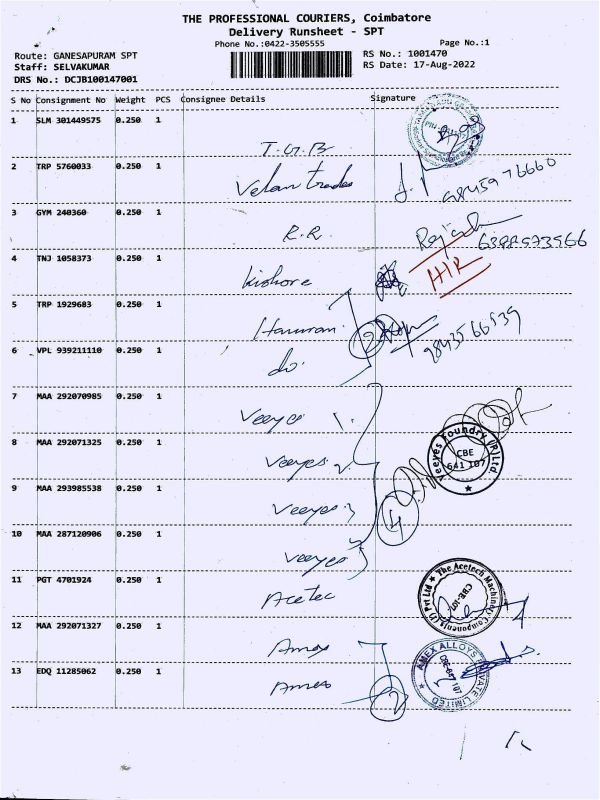 THE PROFESSIONAL COURIERS, Coimbatore
Delivery Runsheet - SPT
Phone No.:0422-3505555
Page No.:1
Route: GANESAPURAM SPT
Staff: SELVAKUMAR
DRS No.: DCJB100147001
RS No.: 1001470
RS Date: 17-Aug-2022
S No Consignment No Weight PCS Consignee Details Signature
1 SLM 301449575 0.250 1
T.G.B
2 TRP 5760033 0.250 1
Velan trades
3 GYM 240360 0.250 1
R.R.
4 TNJ 1058373 0.250 1
Kishore
H/R
5 TRP 1929683 0.250 1
2
6 VPL 939211110 0.250 1
do
7 MAA 292070985 0.250 1
Veeyes 1.
8 MAA 292071325 0.250 1
Veeyes 2
Veeyes Foundry (P) Ltd.
CBE
641 107
9 MAA 293985538 0.250 1
Veeyes 3
4
10 MAA 287120906 0.250 1
Veeyes
11 PGT 4701924 0.250 1
Acetec
The Acetech Machinery Components (I) Pvt Ltd
CBE-107
12 MAA 292071327 0.250 1
Amex
AMEX ALLOYS PRIVATE LIMITED
CBE-641 107
13 EDQ 11285062 0.250 1
Amex
2